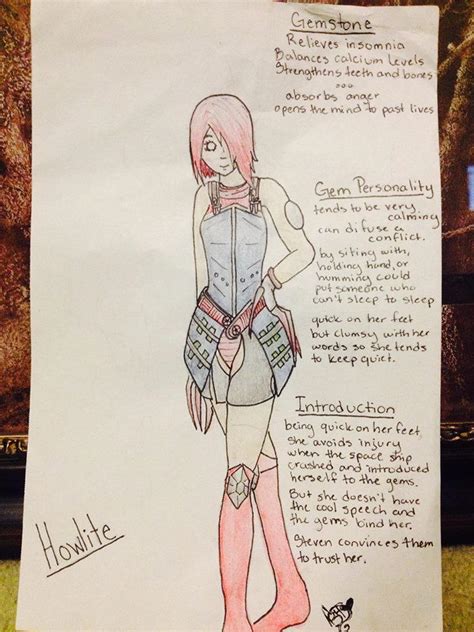 Gemstone
Relieves insomnia
Balances calcium levels
Strengthens teeth and bones
...
absorbs anger
opens the mind to past lives
Gem Personality
tends to be very
calming
can difuse a
conflict.
by siting with,
holding hand, or
humming could
put someone who
can't sleep to sleep
quick on her feet
but clumsy with her
words so she tends
to keep quiet.
Introduction
being quick on her feet,
she avoids injury
when the space ship
crashed and introduced
herself to the gems.
But she doesn't have
the cool speech and
the gems bind her.
Steven convinces them
to trust her.
Howlite